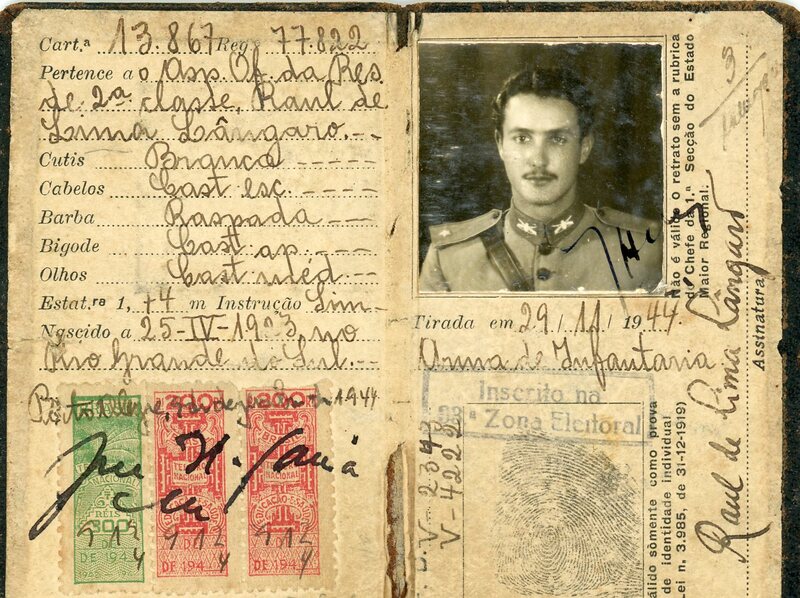 Cart.ª 13.867 Reg. 77.822
Pertence a o Asp. Of. da Res.
de 2ª classe, Raul de
Lima Lângaro.--
Cutis Branca ----
Cabelos Cast esc. ----
Barba Raspada ---
Bigode Cast ap. ---
Olhos Cast med. --
Estat.ra 1, 74 m Instrução Sim--
Nascido a 25-IV-1923 no
Rio Grande do Sul.--
Porto Alegre, de dezembro de 1944
300
NACIONAL
REIS
300
DE 194
300
DE 1944
BRASIL
DE 1944
Não é válido o retrato sem a rubrica
do Chefe da 1.ª Secção do Estado
Maior Regional.
3
Tirada em 29/11/1944
Arma de Infantaria
Inscrito na
ª Zona Eleitoral
V-2343
V-4222
válido somente como prova
de identidade individual
Lei n. 3.985, de 31-12-1919)
Raul de Lima Lângaro
Assinatura